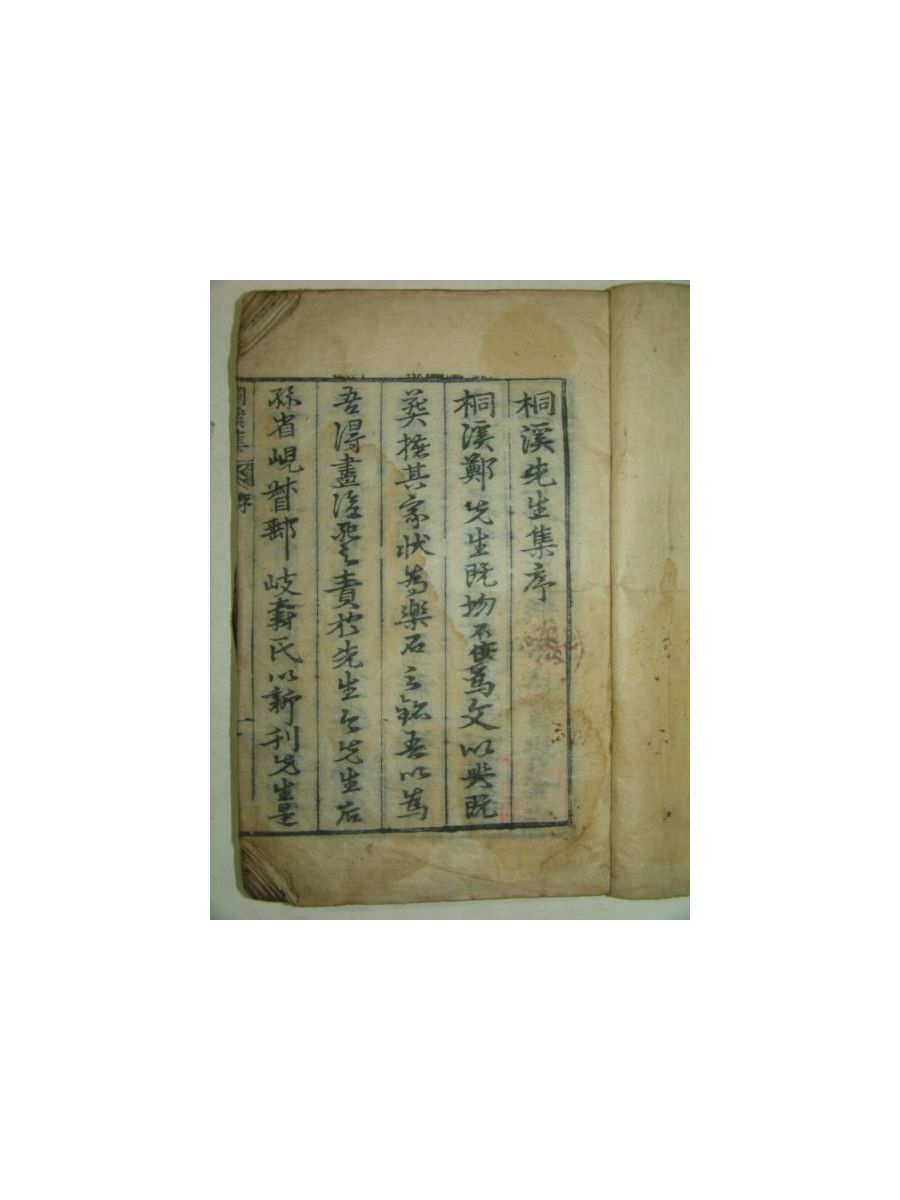 桐溪先生集序
桐溪鄭先生旣歿不佞爲文以哭旣
葬撫其家狀爲樂石之銘吾以爲
吾得盡後死之責於先生今先生后
孫省峴督郵岐壽氏以新刊先生是
桐溪集 序 一